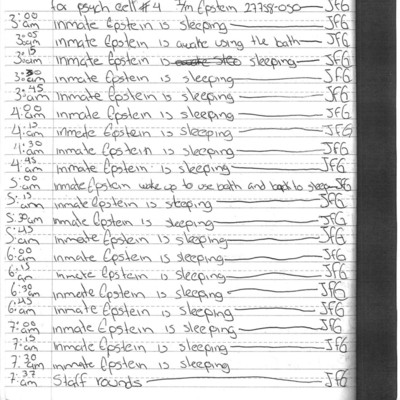 for psych cell #4 I/n Epstein 27788-050 — JFG
3:00 am inmate Epstein is sleeping — JFG
3:05 am inmate Epstein is awake using the bath — JFG
3:15 am inmate Epstein is sleeping — JFG
3:30 am inmate Epstein is sleeping — JFG
3:45 am inmate Epstein is sleeping — JFG
4:00 am inmate Epstein is sleeping — JFG
4:15 am inmate Epstein is sleeping — JFG
4:30 am inmate Epstein is sleeping — JFG
4:45 am inmate Epstein is sleeping — JFG
5:00 am inmate Epstein woke up to use bath and back to sleep — JFG
5:15 am inmate Epstein is sleeping — JFG
5:30 am inmate Epstein is sleeping — JFG
5:45 am inmate Epstein is sleeping — JFG
6:00 am inmate Epstein is sleeping — JFG
6:15 am inmate Epstein is sleeping — JFG
6:30 am inmate Epstein is sleeping — JFG
6:45 am inmate Epstein is sleeping — JFG
7:00 am inmate Epstein is sleeping — JFG
7:15 am inmate Epstein is sleeping — JFG
7:30 am inmate Epstein is sleeping
7:37 am Staff rounds — JFG